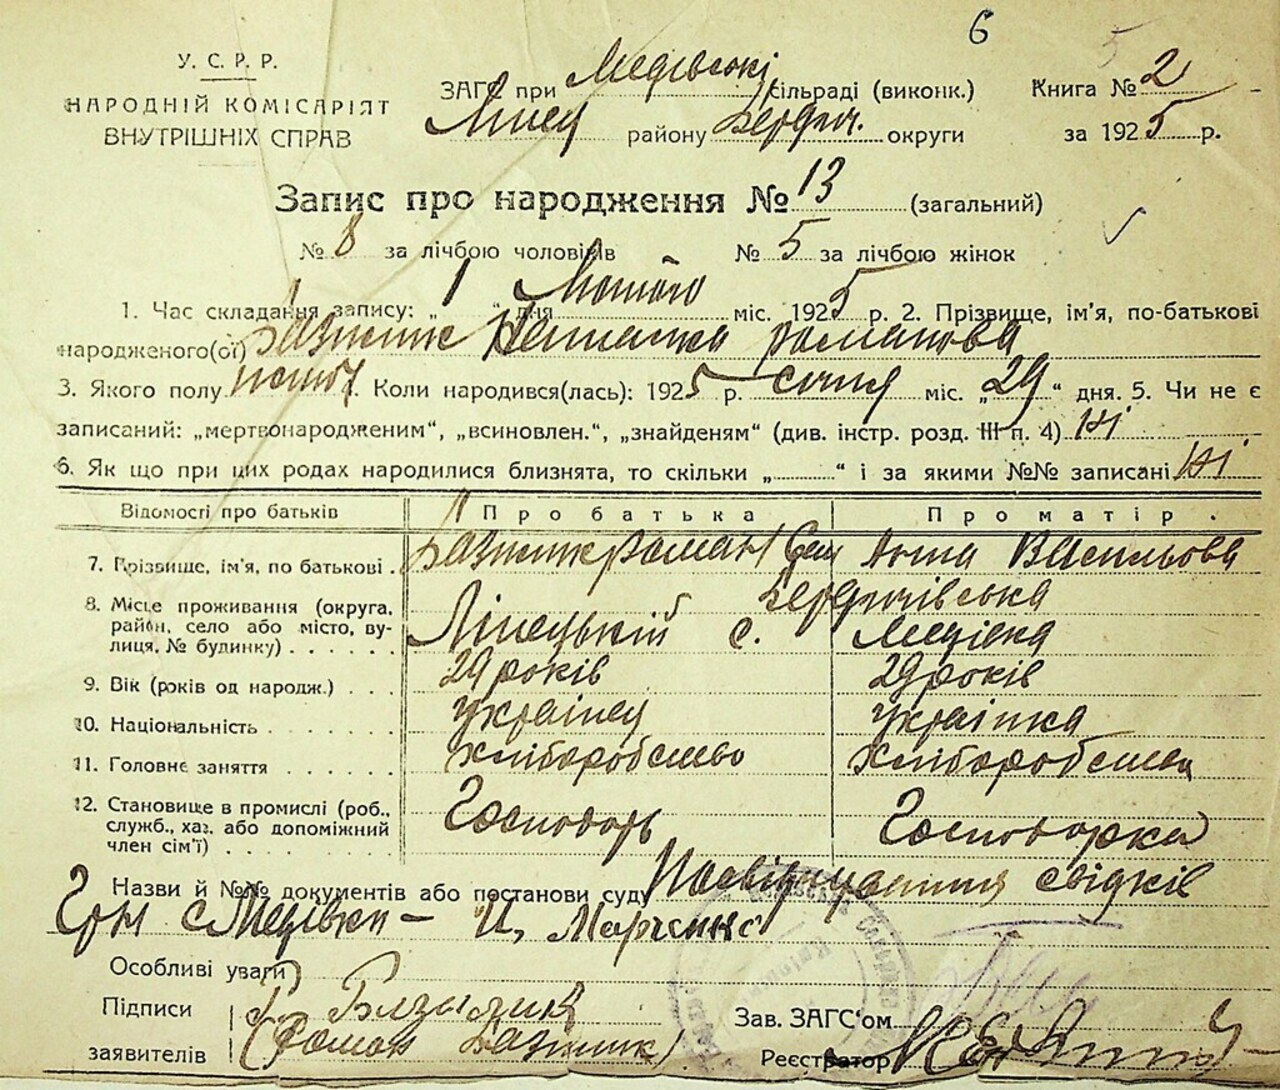 6
У. С. Р. Р.
НАРОДНІЙ КОМІСАРІЯТ
ВНУТРІШНІХ СПРАВ
ЗАГС при Медівській сільраді (виконк.) Книга № 2
району Бердич. округи за 1925 р.
Запис про народження № 13 (загальний)
№ 8 за лічбою чоловіків № 5 за лічбою жінок
1. Час складання запису: „1“ дня Лютого міс. 1925 р. 2. Прізвище, ім'я, по-батькові
народженого(ої) Базилик Романова
3. Якого полу жіноч. Коли народився(лась): 1925 р. січня міс. „29“ дня. 5. Чи не є
записаний: „мертвонародженим“, „всиновлен.“, „знайденям“ (див. інстр. розд. III п. 4) ні
6. Як що при цих родах народилися близнята, то скільки „ “ і за якими №№ записані ні
Відомості про батьків Про батька Про матір.
7. Прізвище, ім'я, по батькові. Базилик Роман Анна Васильова
8. Місце проживання (округа, Бердичівська
район, село або місто, ву- с. Медівка
лиця, № будинку)
9. Вік (років од народж.) 29 років 29 років
10. Національність українец українка
11. Головне заняття хліборобство хліборобство
12. Становище в промислі (роб.,
служб., хаз. або допоміжний Господарь Господарка
член сім'ї)
Назви й №№ документів або постанови суду Посвідчування свідків
Гр-н с Медівки – И. Марченко
Особливі уваги
Підписи Базилик
заявителів (Роман Базилик)
Зав. ЗАГС'ом
Реєстратор